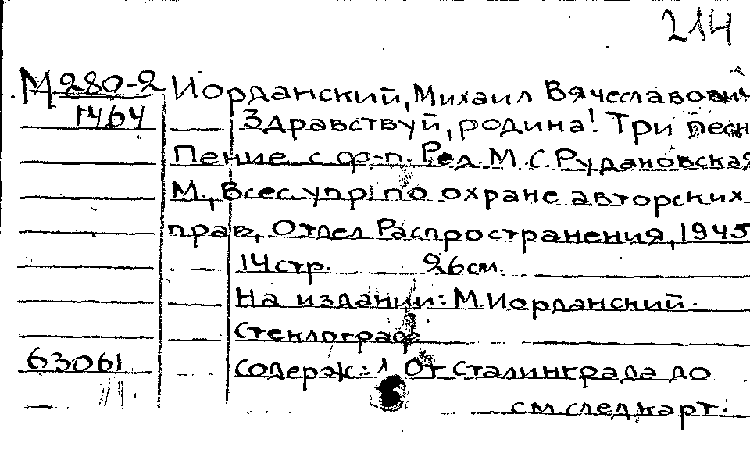 214
М 280-2 Иорданский, Михаил Вячеславович
1464 Здравствуй, родина! Три песн
Пение с ф-п. Ред. М.С. Рудановская
М., Всес. упр. по охране авторских
прав, Отдел Распространения, 1945
14 стр. 26 см.
На издании: М. Иорданский.
Стеклограф.
63061 Содерж: 1 От Сталинграда до
см. след. карт.